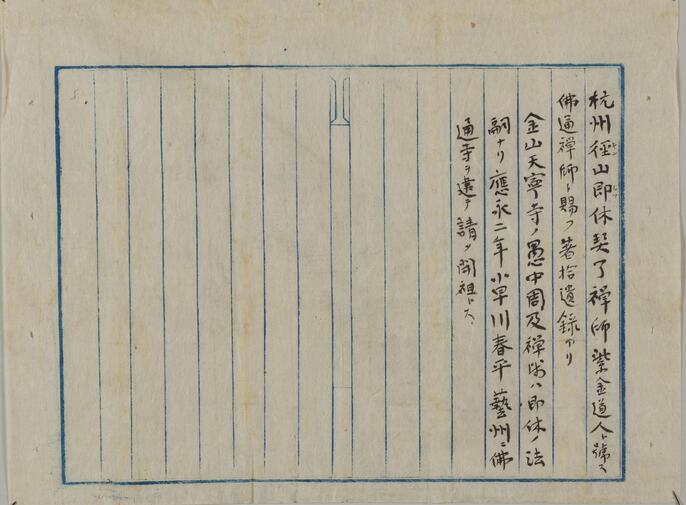 杭州徑山即休契了禅師紫金道人ト號ス
佛通禅師ト賜フ著拾遺録アリ
金山天寧寺ノ愚中周及禅師ハ即休ノ法
嗣ナリ應永二年小早川春平藝州ニ佛
通寺ヲ建テ請メ開祖トス